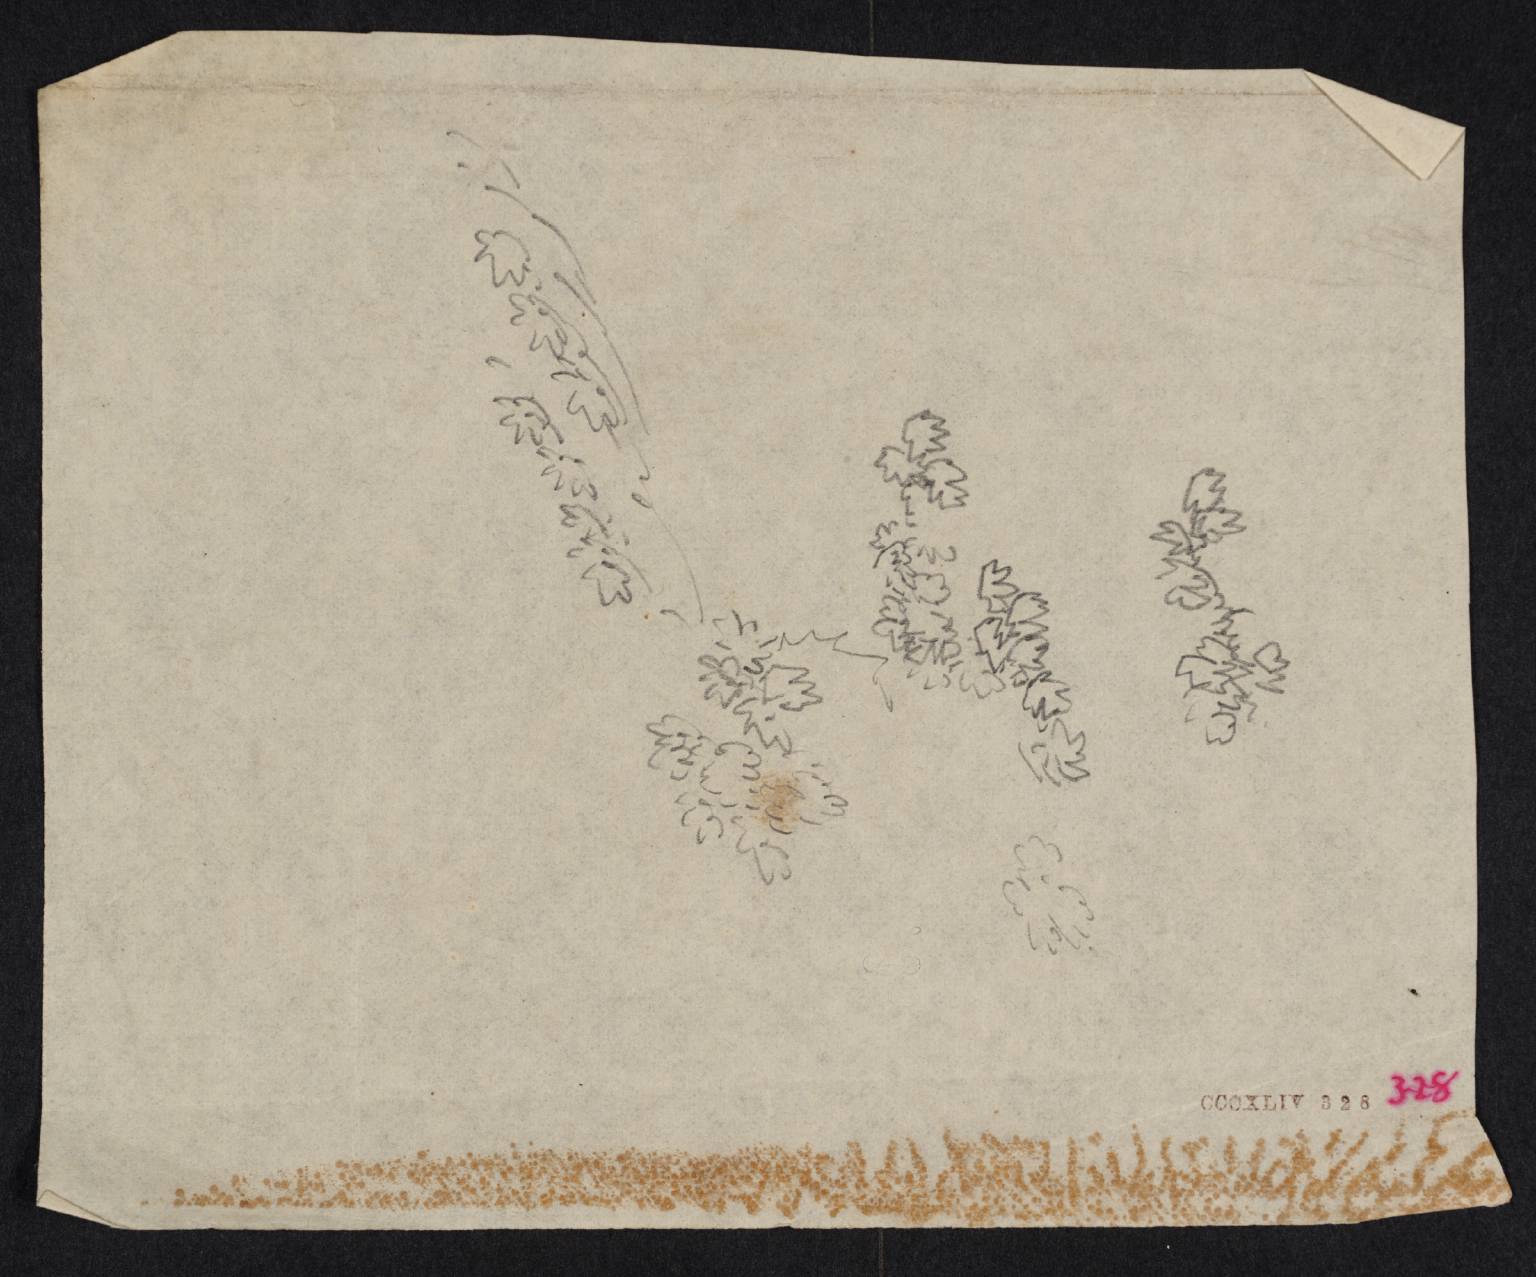 CCCXLIV 328
328